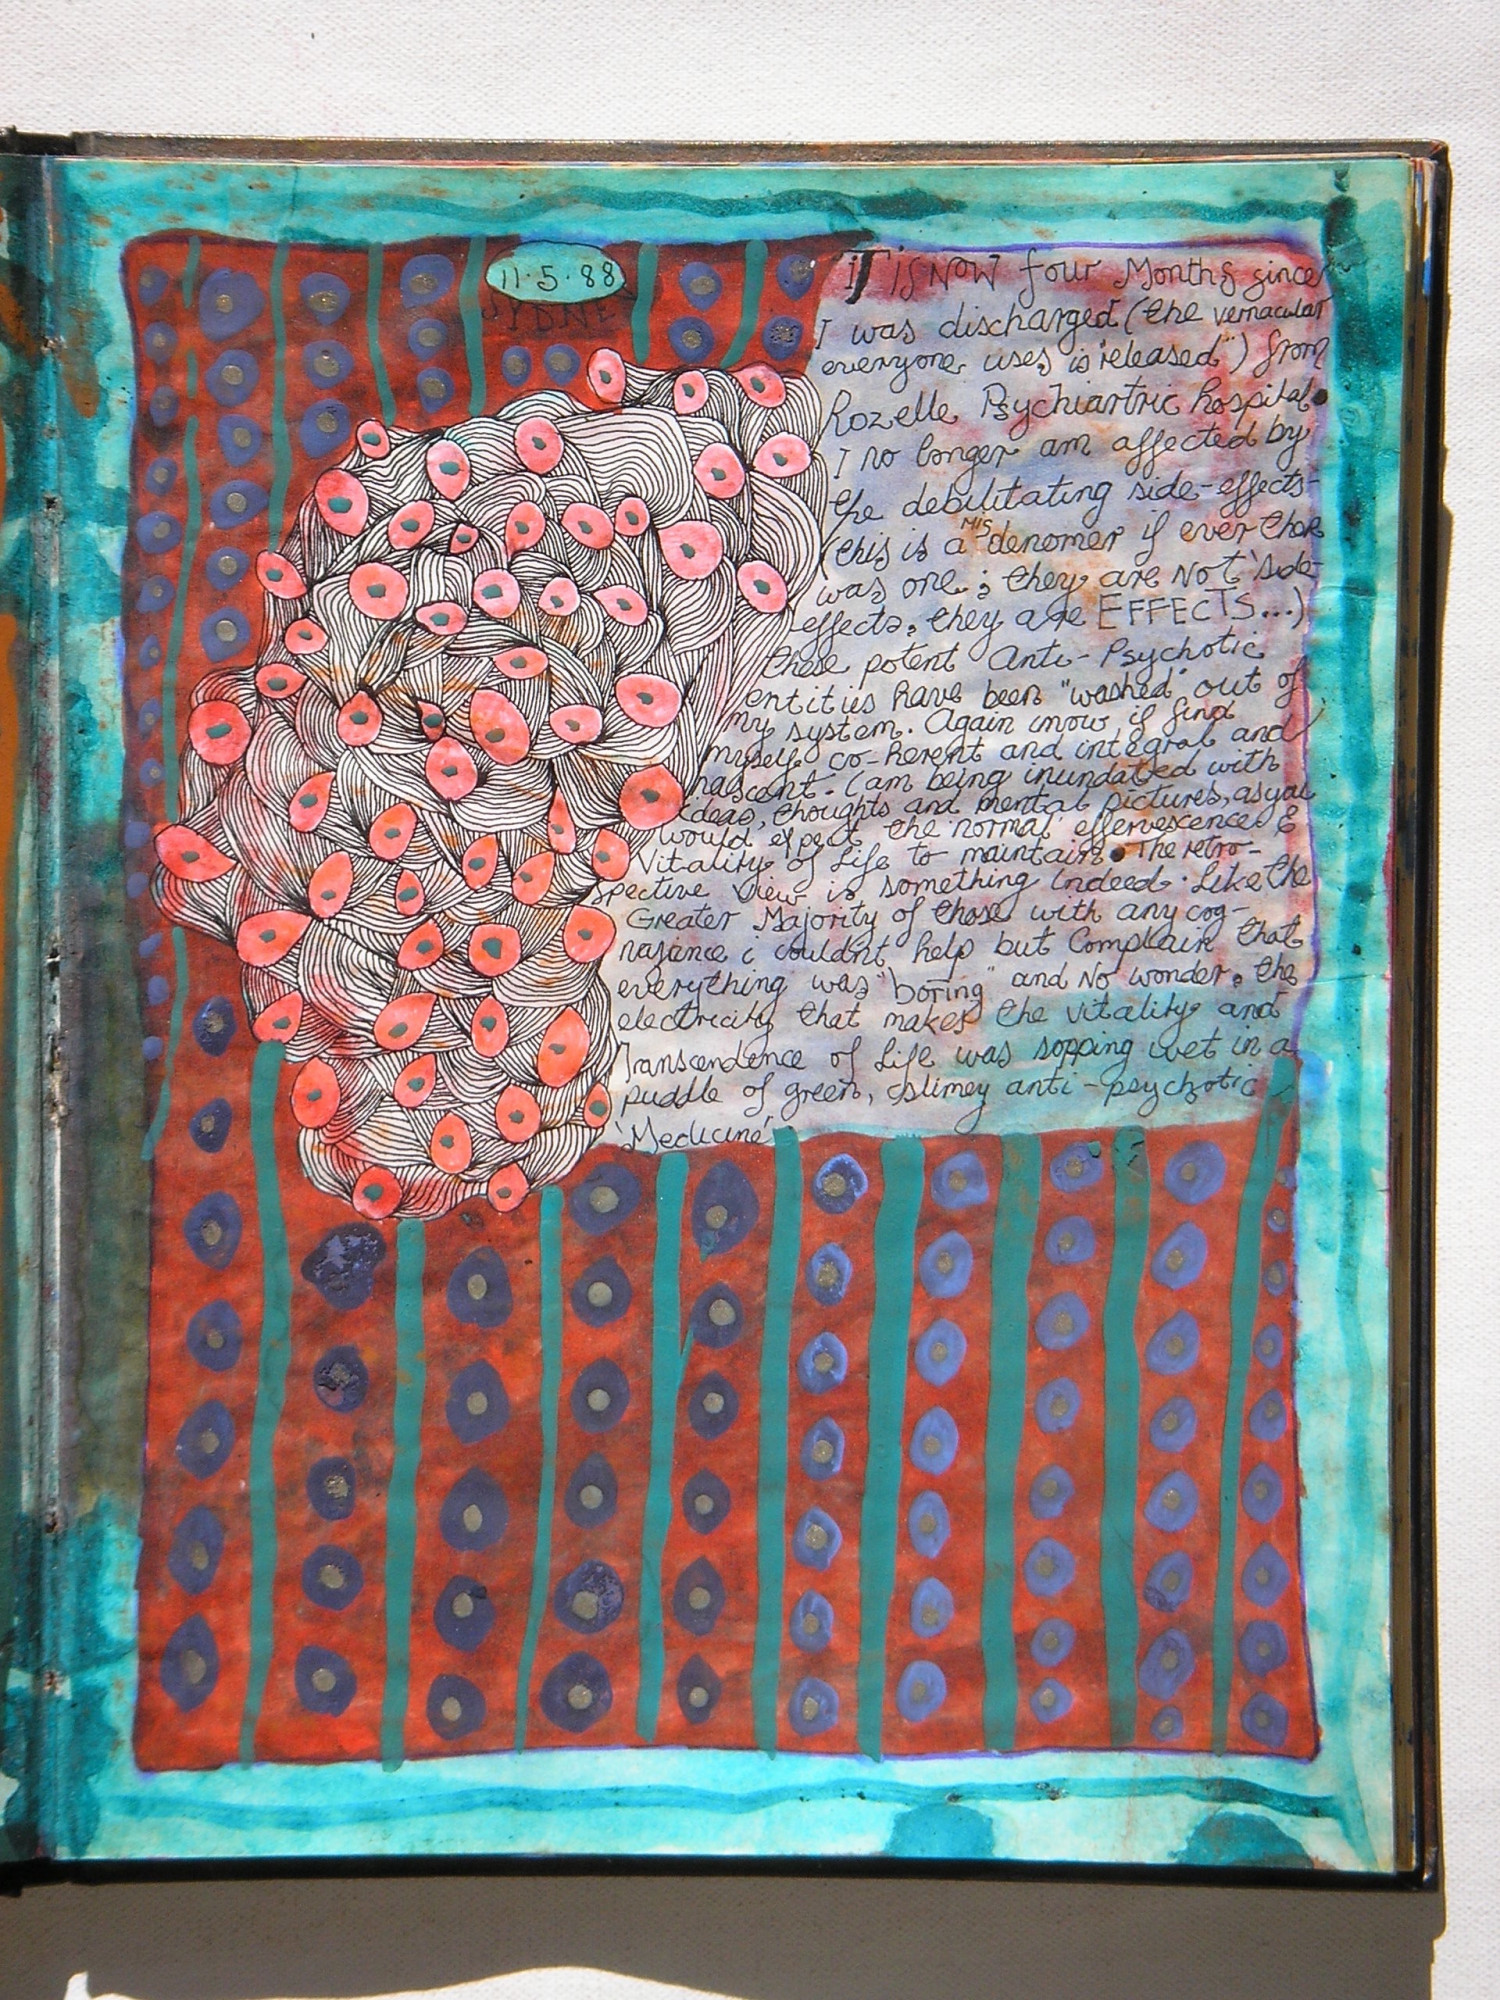 11·5·88
SYDNEY
iT is NOW four Months since
I was discharged (the vernacular
everyone uses is "released") from
Rozelle Psychiartric hospital.
I no longer am affected by
the debilitating side-effects-
(this is a MIS denomer if ever ther
was one; they are Not 'side-
effects, they are EFFECTS...)
these potent Anti-Psychotic
entities have been "washed" out of
my system. Again now i find
myself co-herent and integral and
nascent. I am being inundated with
ideas, thoughts and mental pictures, as you
would expect the 'normal' effervescence &
Vitality of Life to maintain. The retro-
spective view is something indeed. Like the
Greater Majority of those with any cog-
nazance i couldn't help but Complain that
everything was "boring" and No wonder, the
electricity that makes the vitality and
Transcendence of Life was sopping wet in a
puddle of green, slimey anti-psychotic
'Medicine'